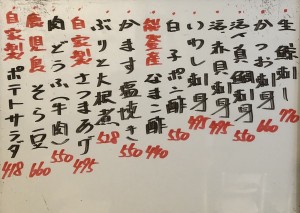 生鯨刺し 770
かつお刺身 660
活〆真鯛刺身 550
活赤貝刺身 495
いわし刺身 495
白子ポン酢 550
能登産なまこ酢 440
かます塩焼き 550
ぶりと大根煮 528
自家製さつまあげ 495
肉どうふ(牛肉) 550
鹿児島そら豆 660
自家製ポテトサラダ 418